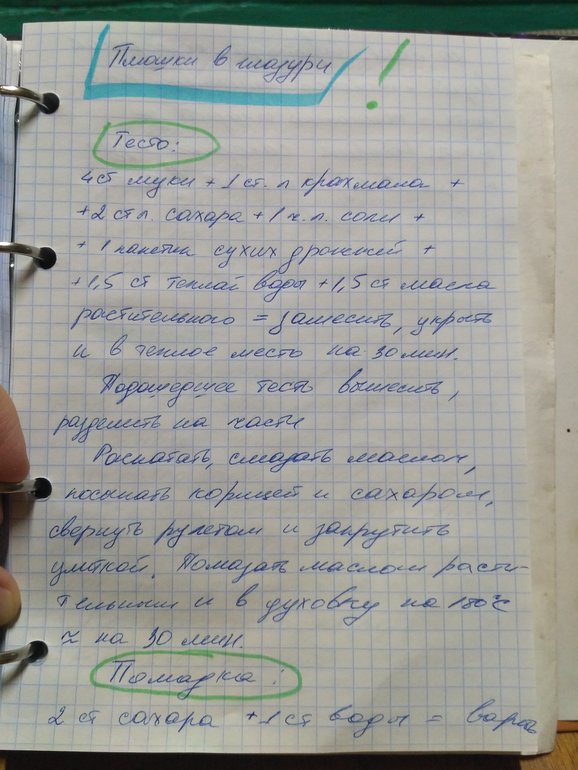 Плюшки в глазури !
Тесто:
4 ст муки + 1 ст. л крахмала +
+ 2 ст л. сахара + 1 ч. л. соли +
+ 1 пакетик сухих дрожжей +
+ 1,5 ст теплой воды + 1,5 ст масла
растительного = замесить, укрыть
и в теплое место на 30 мин.
Подошедшее тесто вымесить,
разделить на части
Раскатать, смазать маслом,
посыпать корицей и сахаром,
свернуть рулетом и закрутить
улиткой. Помазать маслом расти-
тельным и в духовку на °C
≈ на 30 мин.
Помадка:
2 ст сахара + 1 ст воды = варить